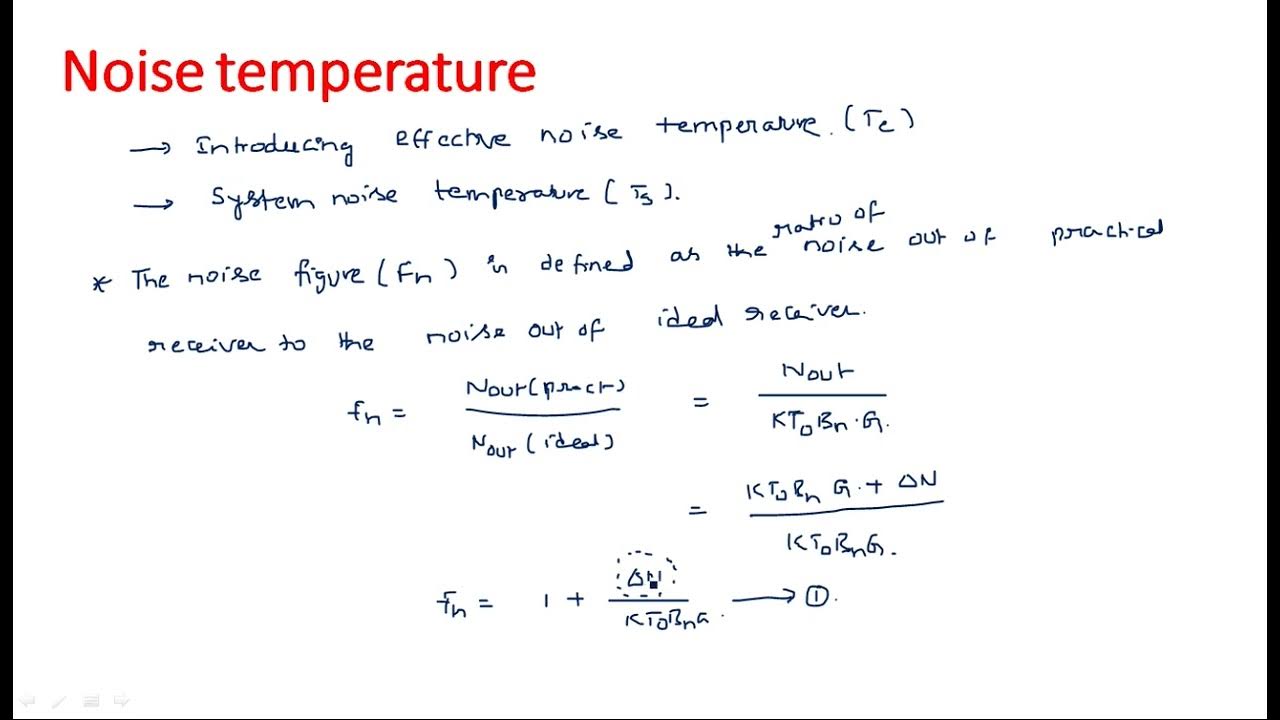 Noise temperature
→ Introducing effective noise temperature. (Te)
→ System noise temperature (Ts).
* The noise figure (Fn) is defined as the ratio of noise out of practical
receiver to the noise out of ideal receiver.
fn = Nout(pract) / Nout(ideal) = Nout / KToBn.G.
= KToBn G.+ ΔN / KToBnG.
fn = 1 + ΔN / KToBnG. → ①.